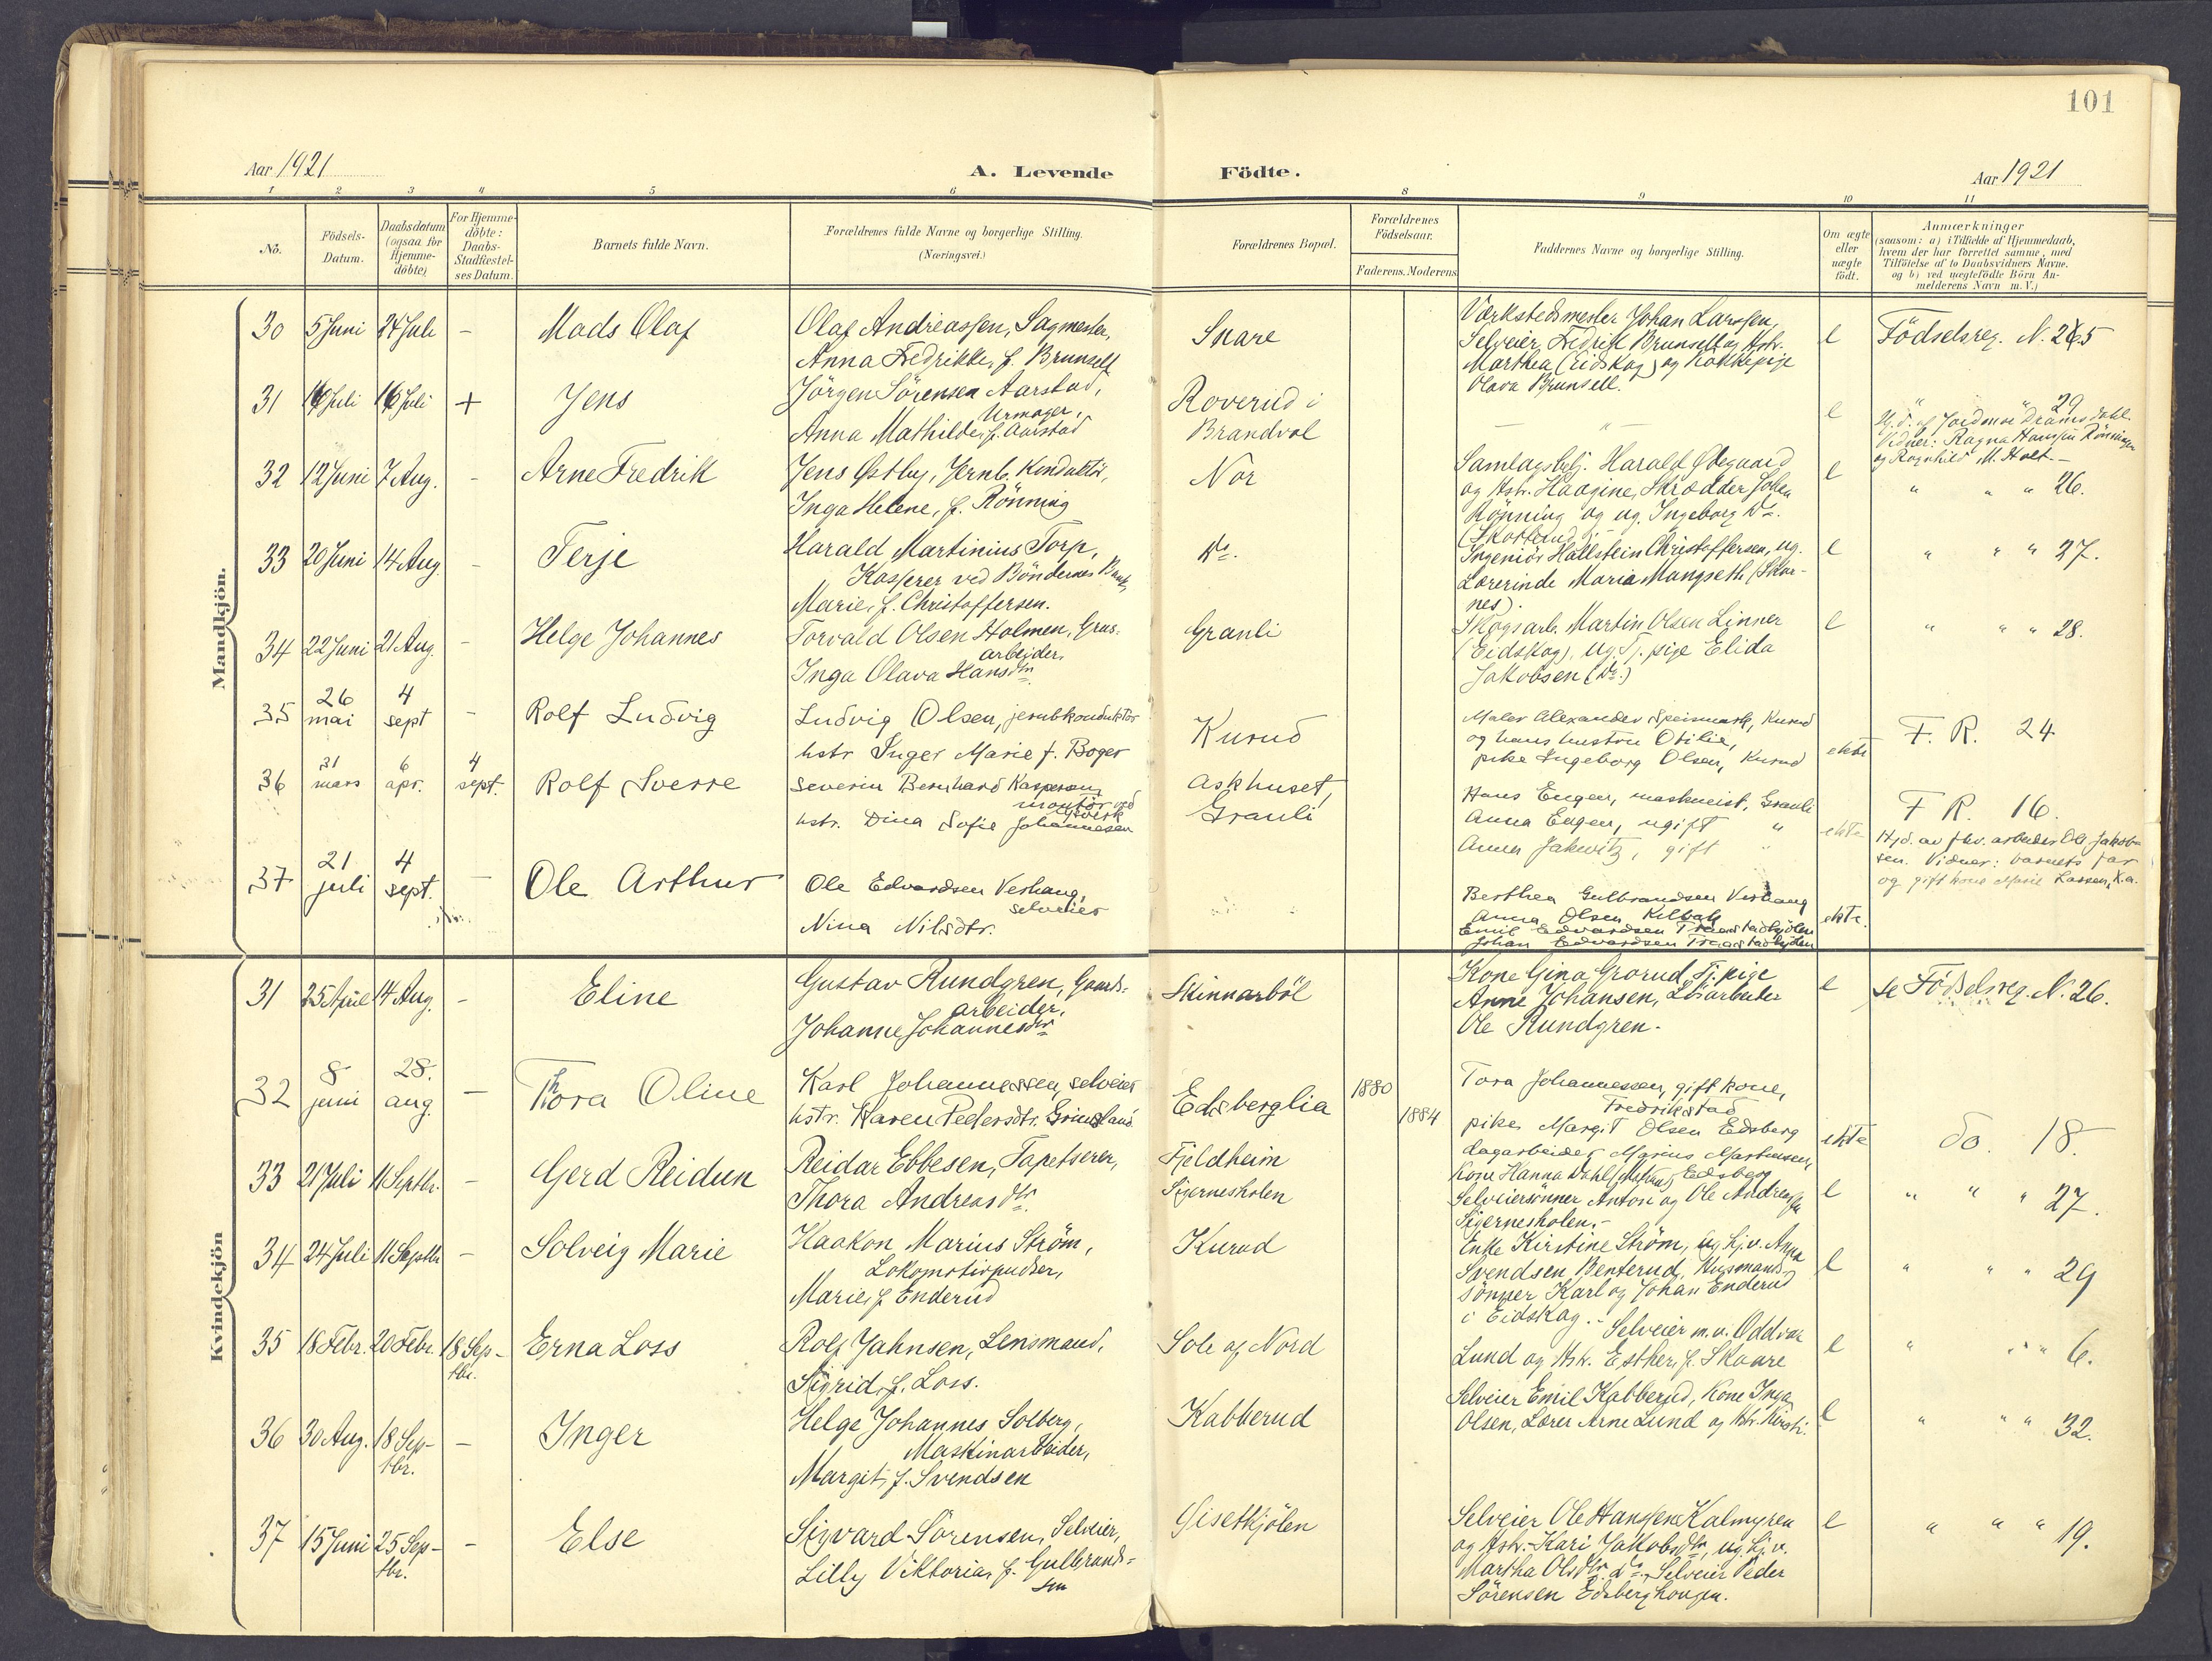 101
Aar 1921
A. Levende
Födte.
Aar 1921
1 2 3 4 5 6 8 9 10 11
No.
Födsels-
Datum.
Daabsdatum
(ogsaa for
Hjemme-
döbte)
For Hjemme-
döbte:
Daabs-
Stadfæstel-
ses Datum.
Barnets fulde Navn.
Forældrenes fulde Navne og borgerlige Stilling.
(Næringsvei.)
Forældrenes Bopæl.
Forældrenes
Födselsaar.
Faderens. Moderens
Faddernes Navne og borgerlige Stilling.
Om ægte
eller
uægte
födt.
Anmærkninger
(saasom: a) i Tilfælde af Hjemmedaab,
hvem der har forrettet samme, med
Tilföielse af to Daabsvidners Navne,
og b) ved uægtefödte Börn An-
melderens Navn m. V.)
Mandkjön.
30 5 Juni 24 Juli - Mads Olaf
Olaf Andreassen, Sagmester,
Anna Fredrikke, f. Brunsell
Snare
Værkstedsmester Johan Larssen,
Selveier Fredrik Brunsell og Hstr.
Marthea (Eidskog) og Kokkepige
Olava Brunsell.
e
Födselsreg. N. 25
31 16 Juli 16 Juli + Jens
Jörgen Sörensen Aarstad,
Urmager,
Anna Mathilde, f. Aarstad
Roverud i
Brandval
— " —
e
" " 29
Hj.d. af Jordmor Dramsdahl.
Vidner: Ragna Hansen Rönningen
og Ragnhild M. Holt.-
32 12 Juni 7 Aug. - Arne Fredrik
Jens Østby, Jernb. Konduktör,
Inga Helene, f. Rönning
Nor
Samlagsbetj. Harald Ødegaard
og Hstr. Haagine, Skrædder Johan
Rönning og ug. Ingeborg Do.
e
" " " 26.
33 20 Juni 14 Aug. - Terje
Harald Martinius Torp,
Kasserer ved Böndernes Bank,
Marie, f. Christoffersen.
Do.
Ingeniör Hallstein Christoffersen, ug.
Lærerinde Maria Mangseth (Skar-
nes).
e
" " " 27.
34 22 Juni 21 Aug. - Helge Johannes
Torvald Olsen Holmen, Grus-
arbeider,
Inga Olava Hansdtr.
Granli
Skogsarb. Martin Olsen Linner
(Eidskog), ug. Tj. pige Elida
Jakobsen (Do.)
e
" " " 28.
35 26 mai 4 sept - Rolf Ludvig
Ludvig Olsen, jernbkonduktör
hstr Inger Marie f. Boger
Kurud
Maler Alexander Speismark, Kurud
og hans hustru Otilie,
pike Ingeborg Olsen, Kurud
ekte
F. R. 24
36 31 mars 6 apr. 4 sept. Rolf Sverre
Severin Bernhard Kaspersen,
montör ved
hstr. Dina Sofie Johannesen
Askhuset,
Granli
Hans Engen, maskineist, Granli
Anna Engen, ugift "
Anna Jakwitz, gift "
ekte
F R. 16.
Hjd. av fhv. arbeider Ole Jakob-
sen. Vidner: barnets far
og gift kone Marie Lassen, K.a.
37 21 juli 4 sept. - Ole Arthur
Ole Edvardsen Verhaug,
selveier
Nina Nilsdtr.
Berthea Gulbrandsen Verhaug
Anna Olsen
Emil Edvardsen
Johan Edvardsen
ekte.
Kvindekjön
31 25 April 14 Aug. - Eline
Gustav Rundgren, Gaards-
arbeider,
Johanne Johannesdtr
Skinnarböl
Kone Gina Grorud, Tj.pige
Anne Johansen, Lösarbeider
Ole Rundgren.
e
se Födselsreg. N. 26.
32 8 juni 28. aug. - Thora Oline
Karl Johannessen, selveier
hstr. Karen Pedersdtr. Grimsland
Edsberglia
1880
1884
Tora Johannessen, gift kone,
Fredrikstad
pike Margit Olsen Edsberg
dagarbeider Marius Martinsen,
ekte
do. 18.
33 21 Juli 11 Septbr. - Gerd Reidun
Reidar Ebbesen, Tapetserer,
Thora Andreasdtr.
Fjeldheim
Sigernesholen
Kone Hanna Dahl, Edsberg
Selveiersönner Anton og Ole Andreassen
Sigernesholen.-
e
" " " 27.
34 24 Juli 11 Septbr - Solveig Marie
Haakon Marius Ström,
Lokomotivpudser,
Marie, f. Enderud
Kurud
Enke Kirstine Ström, ug. hj.v. Anna
Svendsen Benterud, Husmands-
sönner Karl og Johan Enderud
i Eidskog.-
e
" " " 29
35 18 Febr. 20 Febr. 18 Sep-
tbr.
Erna Loss
Rolf Jahnsen, Lensmand,
Sigrid, f. Loss.
Sole af Nord
Selveier m.v. Oddvar
Lund og Hstr. Esther, f. Skaare
e
" " " 6.
36 30 Aug. 18 Sep-
tbr.
- Inger
Helge Johannes Solberg,
Maskinarbeider,
Margit, f. Svendsen
Kabberud
Selveier Emil Kabberud, Kone Inga
Olsen, Lærer Arne Lund og Hstr. Kirsti.
e
" " " 32.
37 15 Juni 25 Sep-
tbr.
- Else
Sigvard Sörensen, Selveier,
Lilly Viktoria, f. Gulbrand-
sen
Gisetkjölen
Selveier Ole Hansen Kalmyren
og Hstr. Kari Jakobsdtr, ug. hj.v.
Martha Olsdtr. do., Selveier Peder
Sörensen Edsberghaugen.
e
" " " 19.